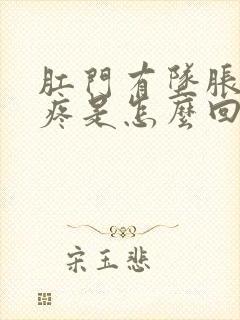 肛門有墜脹
疼是怎麼回
宋玉悲